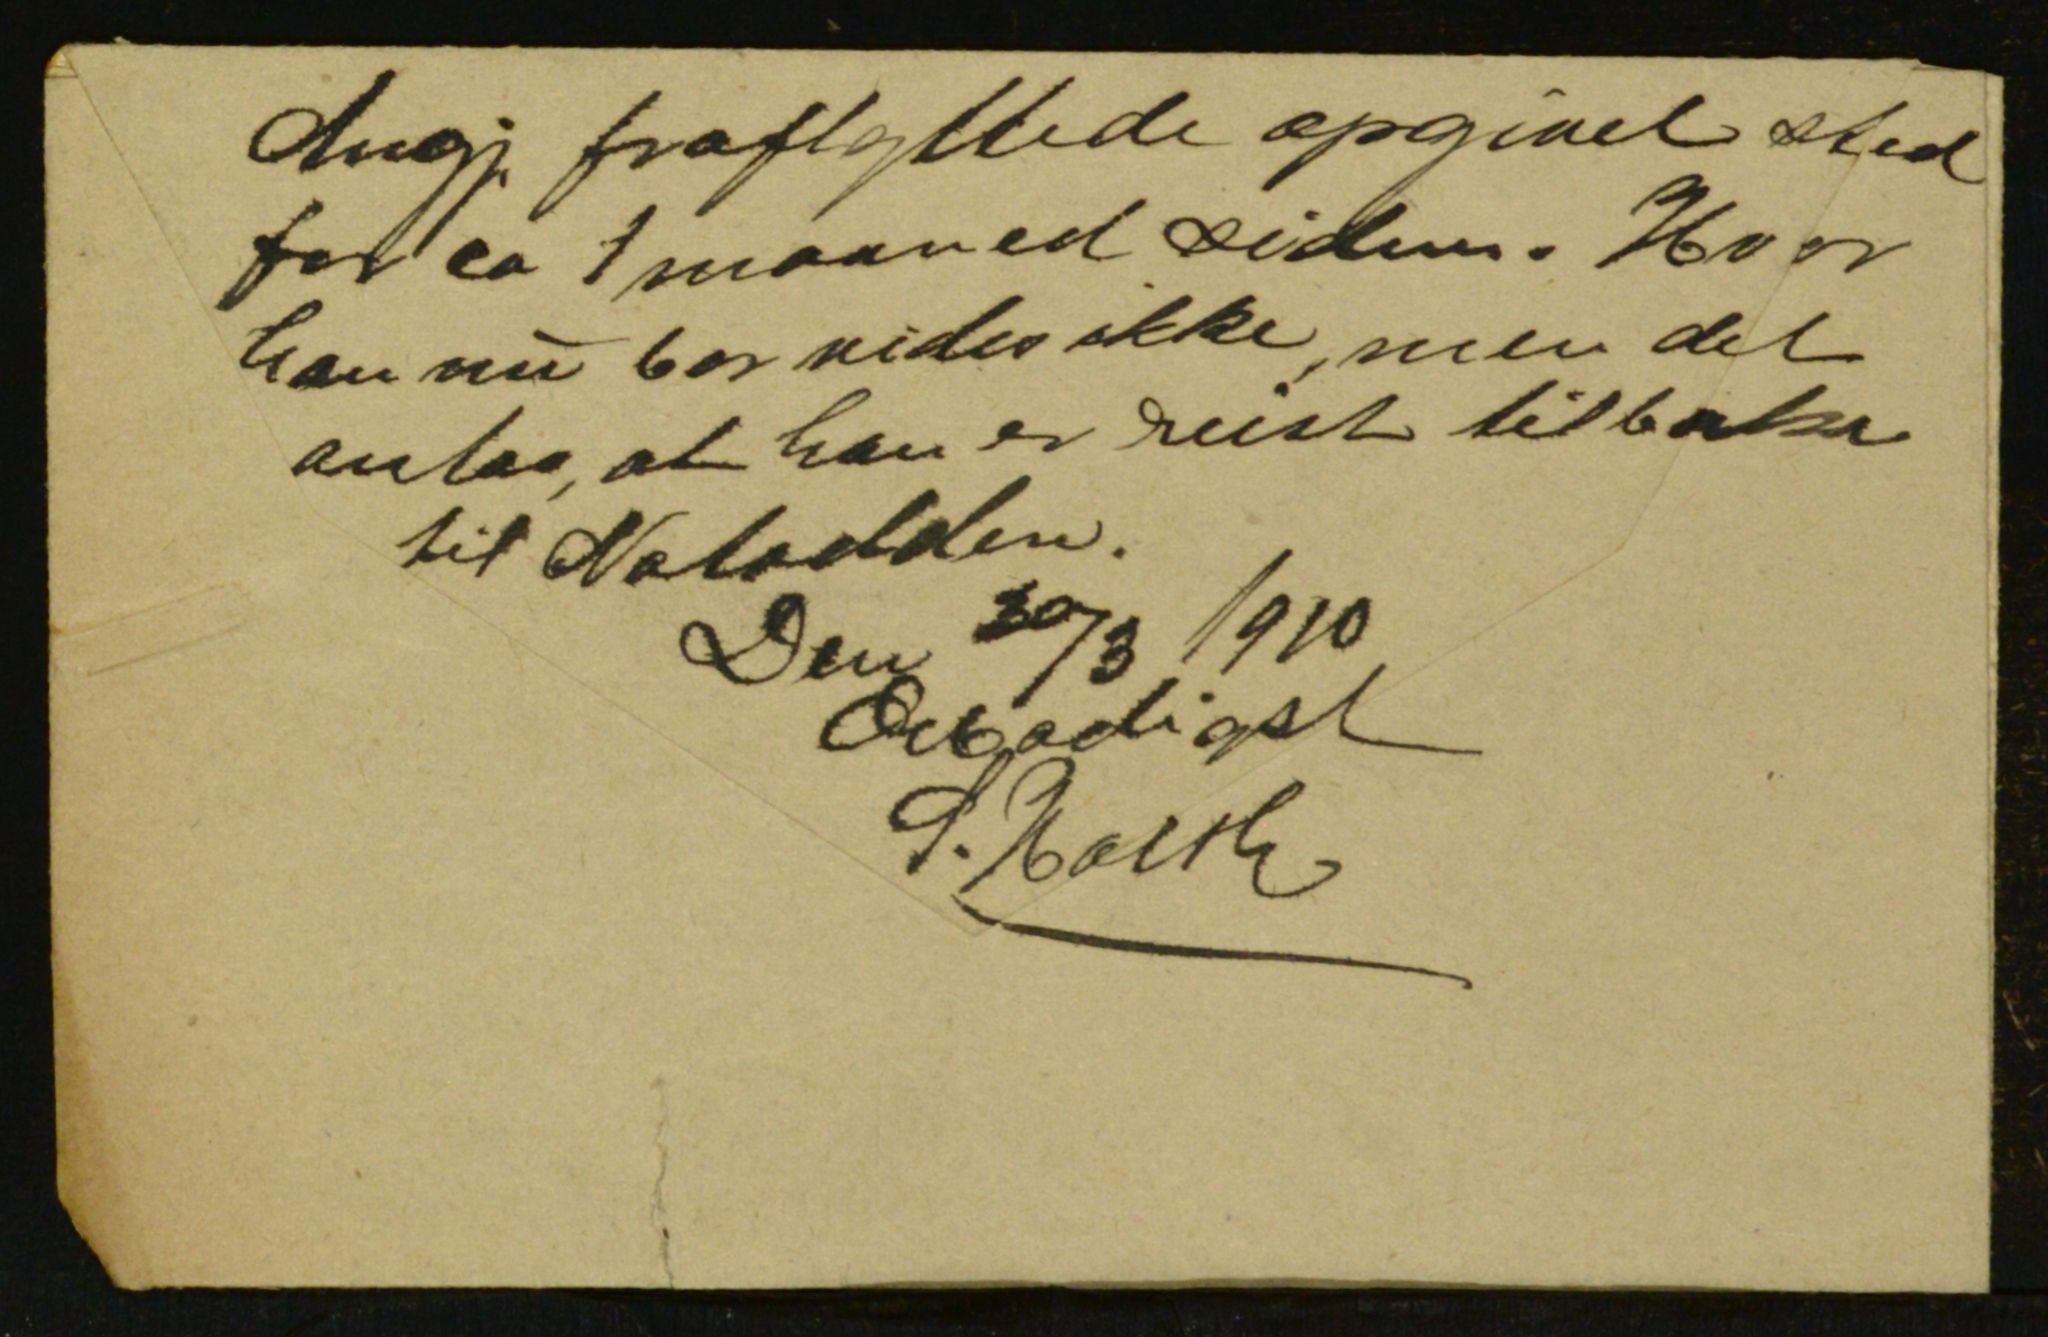 Angj. fraflyttede opgivet sted
for ca 1 maaned siden. Hvor
han nu bor vides ikke, men det
antas, at han er reist tilbake
til Notodden.
Den 30/3 1910
Ærbødigst